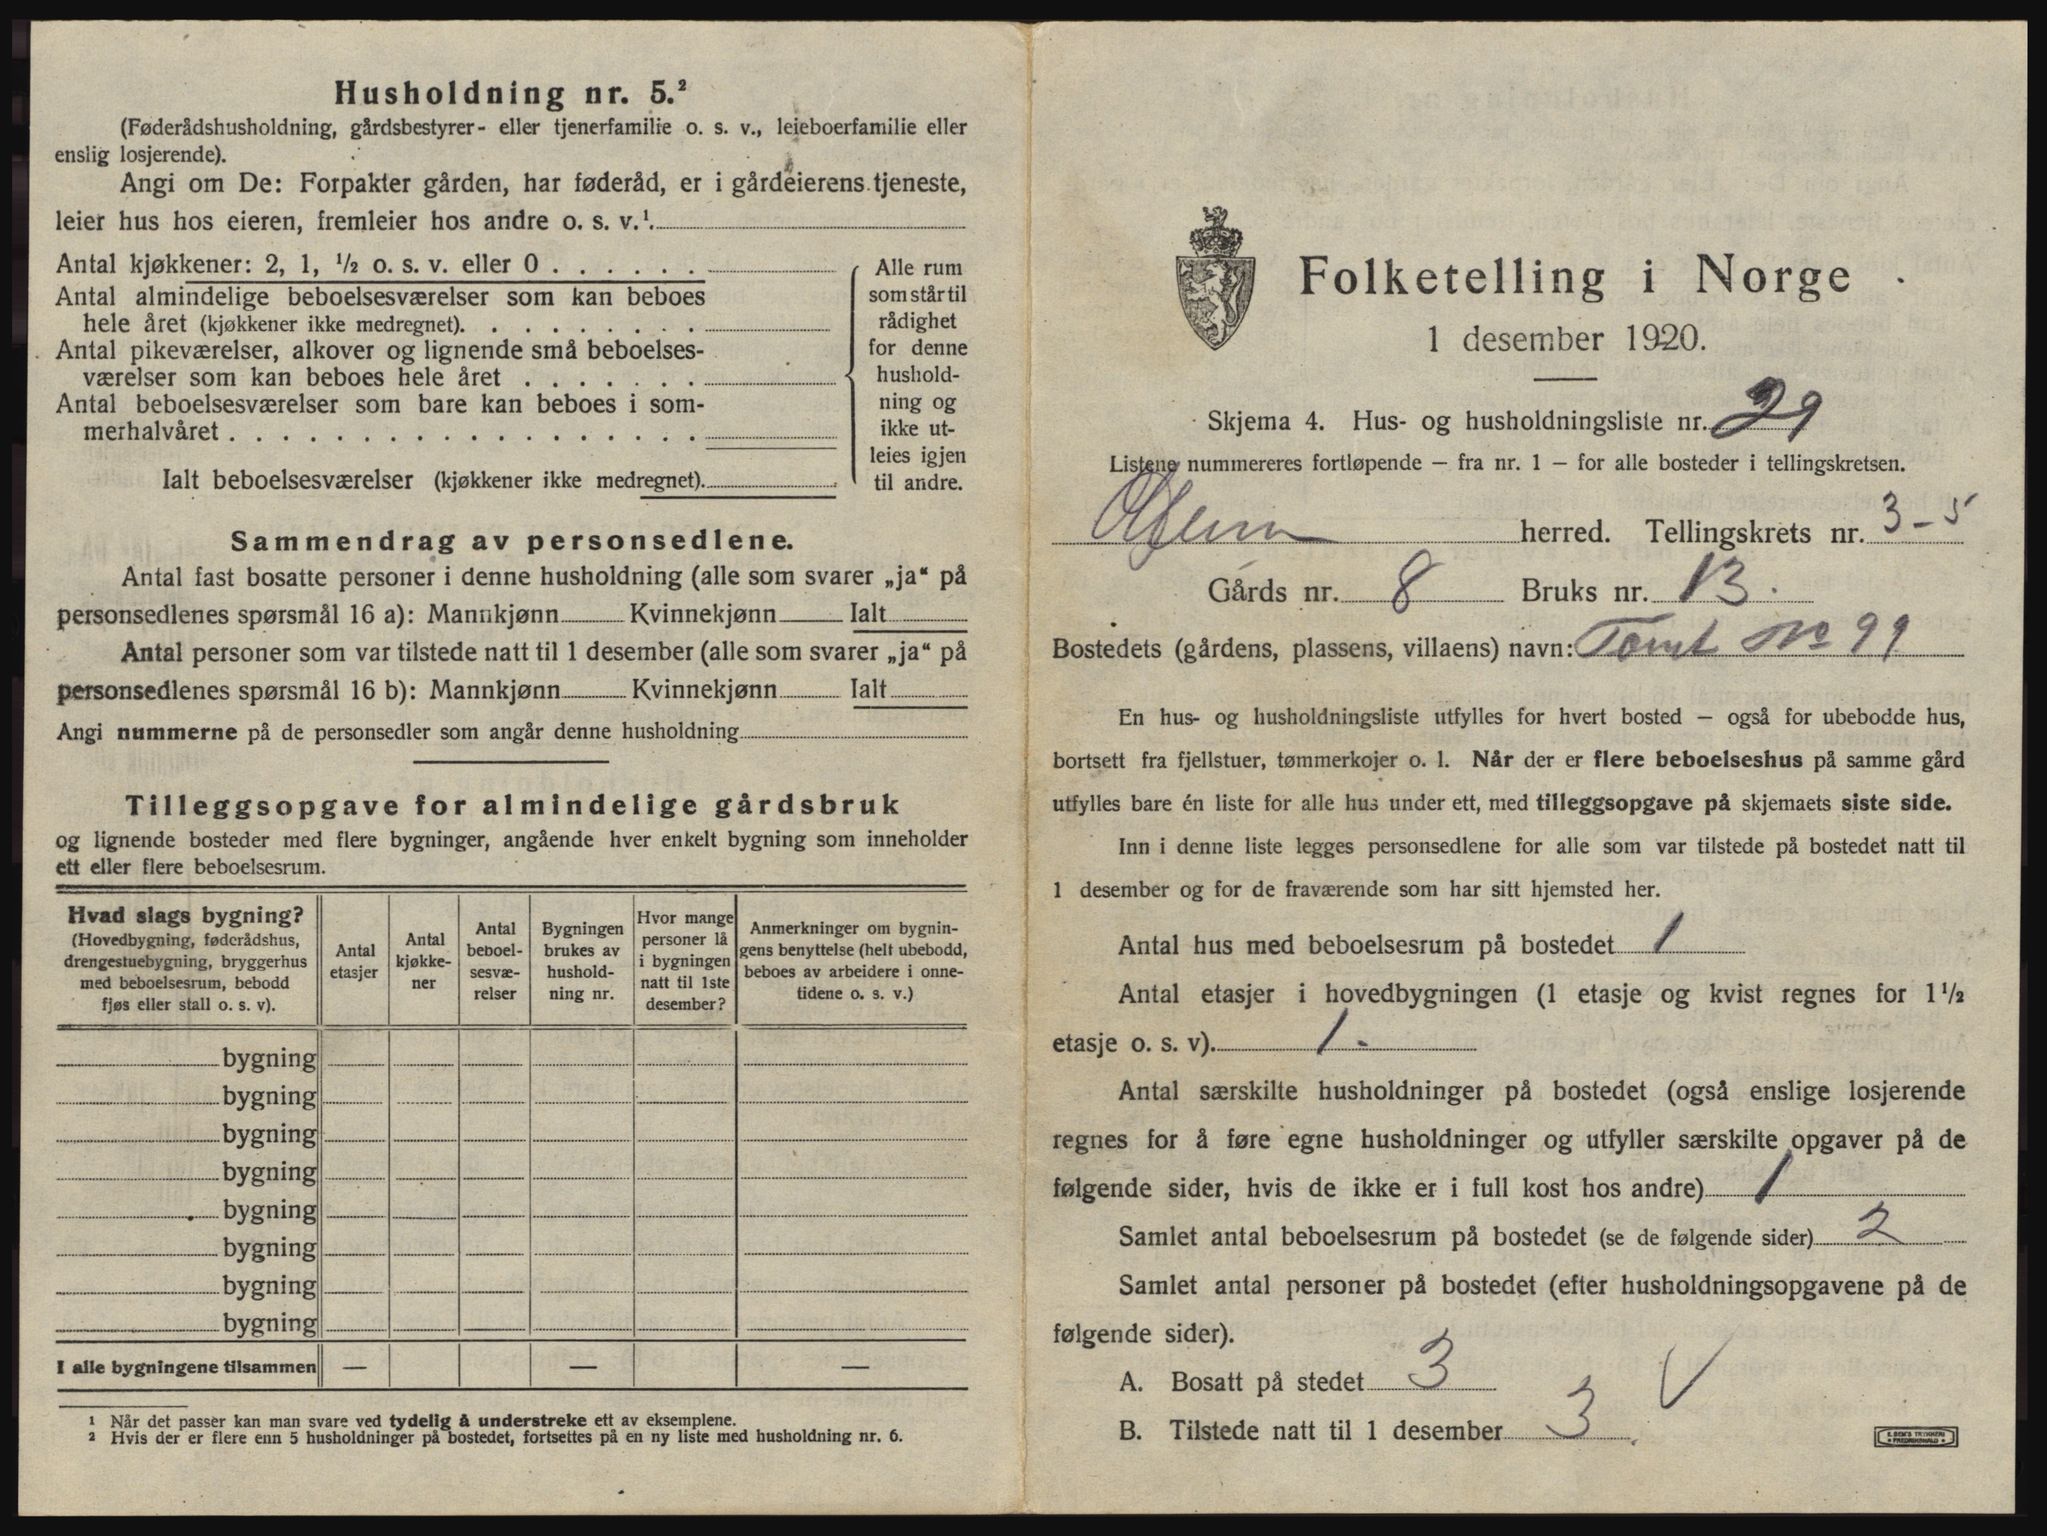 Husholdning nr. 5.²
(Føderådshusholdning, gårdsbestyrer- eller tjenerfamilie o. s. v., leieboerfamilie eller
enslig losjerende).
Angi om De: Forpakter gården, har føderåd, er i gårdeierens tjeneste,
leier hus hos eieren, fremleier hos andre o. s. v.¹.
Antal kjøkkener: 2, 1, ½ o. s. v. eller 0 . . . . . .
Antal almindelige beboelsesværelser som kan beboes
hele året (kjøkkener ikke medregnet). . . . . . . . .
Antal pikeværelser, alkover og lignende små beboelses-
værelser som kan beboes hele året . . . . . . .
Antal beboelsesværelser som bare kan beboes i som-
merhalvåret . . . . . . . . . . . . . . . . . .
Alle rum
som står til
rådighet
for denne
hushold-
ning og
ikke ut-
leies igjen
til andre.
Ialt beboelsesværelser (kjøkkener ikke medregnet).
Sammendrag av personsedlene.
Antal fast bosatte personer i denne husholdning (alle som svarer „ja“ på
personsedlenes spørsmål 16 a): Mannkjønn Kvinnekjønn Ialt
Antal personer som var tilstede natt til 1 desember (alle som svarer „ja“ på
personsedlenes spørsmål 16 b): Mannkjønn Kvinnekjønn Ialt
Angi nummerne på de personsedler som angår denne husholdning
Tilleggsopgave for almindelige gårdsbruk
og lignende bosteder med flere bygninger, angående hver enkelt bygning som inneholder
ett eller flere beboelsesrum.
Hvad slags bygning?
(Hovedbygning, føderådshus,
drengestuebygning, bryggerhus
med beboelsesrum, bebodd
fjøs eller stall o. s. v).
Antal
etasjer
Antal
kjøkke-
ner
Antal
beboel-
sesvæ-
relser
Bygningen
brukes av
hushold-
ning nr.
Hvor mange
personer lå
i bygningen
natt til 1ste
desember?
Anmerkninger om bygnin-
gens benyttelse (helt ubebodd,
beboes av arbeidere i onne-
tidene o. s. v.)
bygning
bygning
bygning
bygning
bygning
bygning
bygning
bygning
I alle bygningene tilsammen — — —
¹ Når det passer kan man svare ved tydelig å understreke ett av eksemplene.
² Hvis der er flere enn 5 husholdninger på bostedet, fortsettes på en ny liste med husholdning nr. 6.
Folketelling i Norge
1 desember 1920.
Skjema 4. Hus- og husholdningsliste nr. 29
Listene nummereres fortløpende – fra nr. 1 – for alle bosteder i tellingskretsen.
herred. Tellingskrets nr. 3-5
Gårds nr. 8 Bruks nr. 13.
Bostedets (gårdens, plassens, villaens) navn: Tomt No 99
En hus- og husholdningsliste utfylles for hvert bosted – også for ubebodde hus,
bortsett fra fjellstuer, tømmerkojer o. l. Når der er flere beboelseshus på samme gård
utfylles bare én liste for alle hus under ett, med tilleggsopgave på skjemaets siste side.
Inn i denne liste legges personsedlene for alle som var tilstede på bostedet natt til
1 desember og for de fraværende som har sitt hjemsted her.
Antal hus med beboelsesrum på bostedet 1
Antal etasjer i hovedbygningen (1 etasje og kvist regnes for 1½
etasje o. s. v). 1.
Antal særskilte husholdninger på bostedet (også enslige losjerende
regnes for å føre egne husholdninger og utfyller særskilte opgaver på de
følgende sider, hvis de ikke er i full kost hos andre) 1
Samlet antal beboelsesrum på bostedet (se de følgende sider) 2
Samlet antal personer på bostedet (efter husholdningsopgavene på de
følgende sider).
A. Bosatt på stedet 3
B. Tilstede natt til 1 desember 3